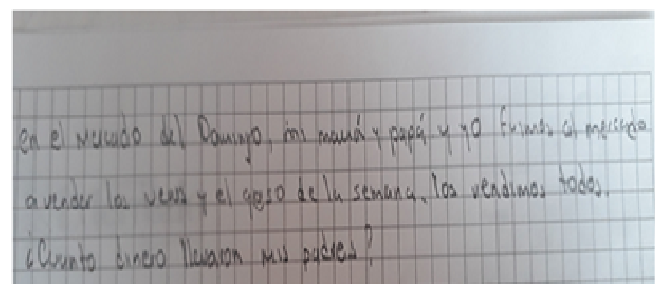 en el mercado del Domingo, mi mamá y papá y yo fuimos al mercado
a vender las y el qeso de la semana. los vendimos todos.
¿Cuanto dinero llevaron mis padres?